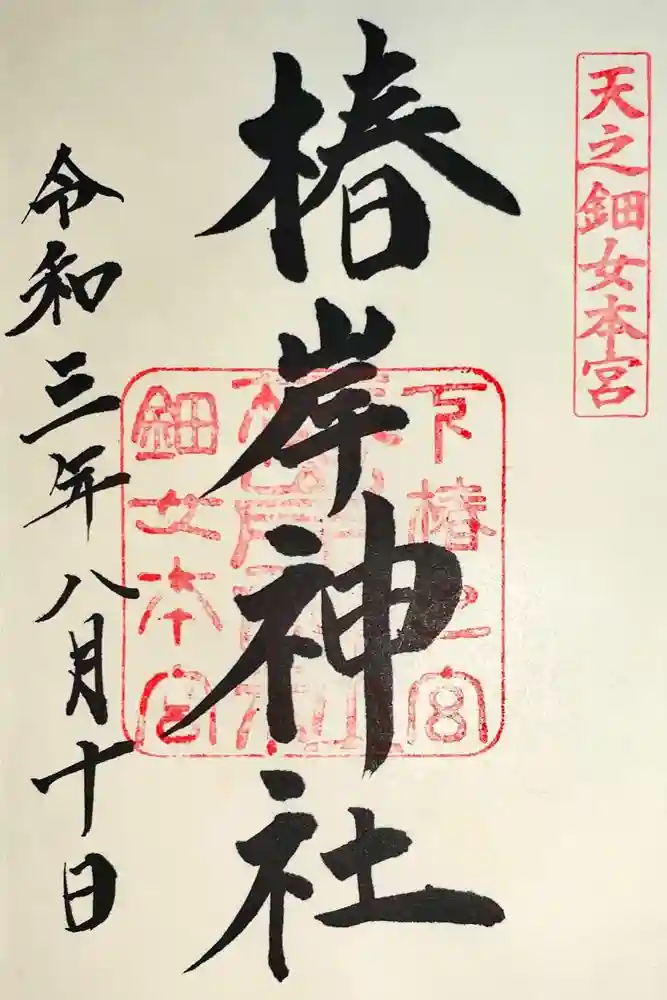 天之鈿女本宮
椿岸神社
下椿之宮
鈿女本宮
令和三年八月十日